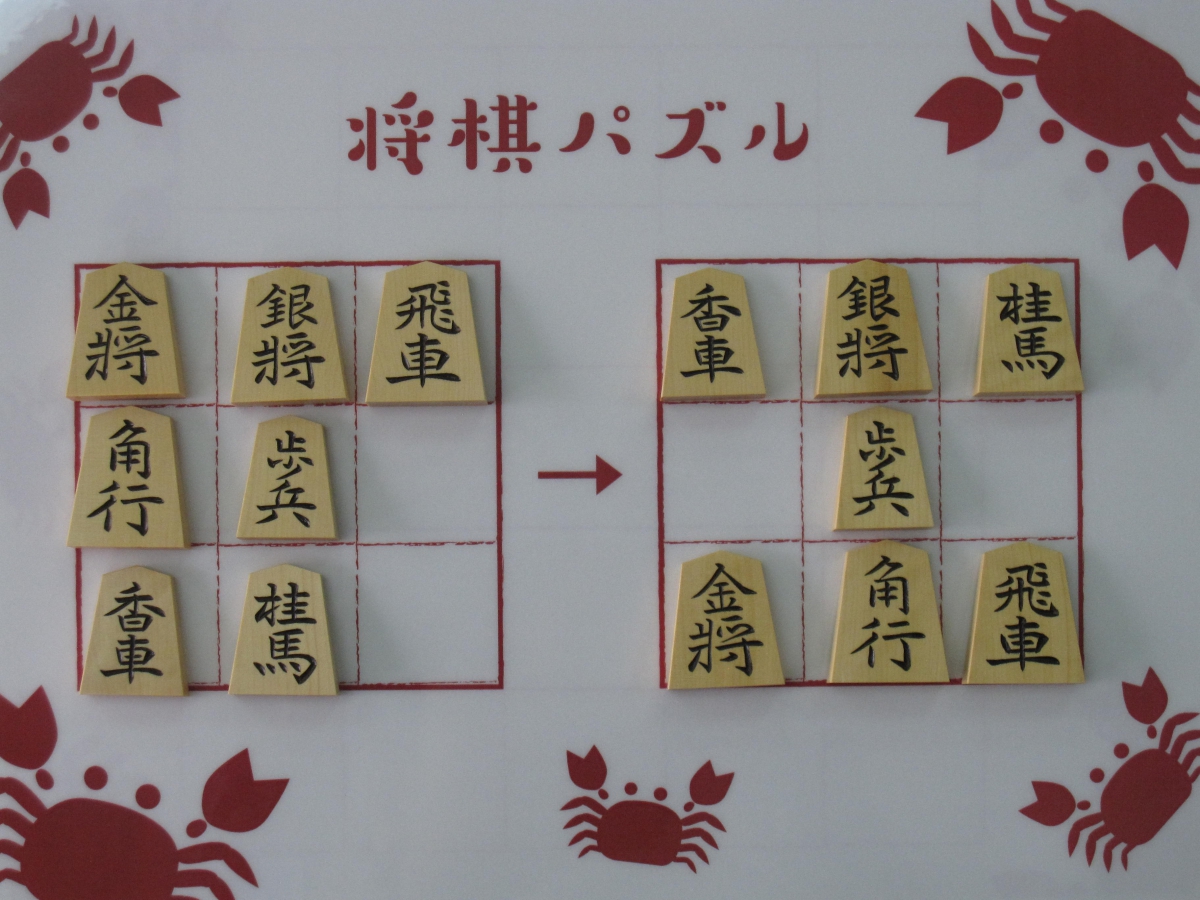 将棋パズル
金将 銀将 飛車
角行 歩兵
香車 桂馬
香車 銀将 桂馬
歩兵
金将 角行 飛車